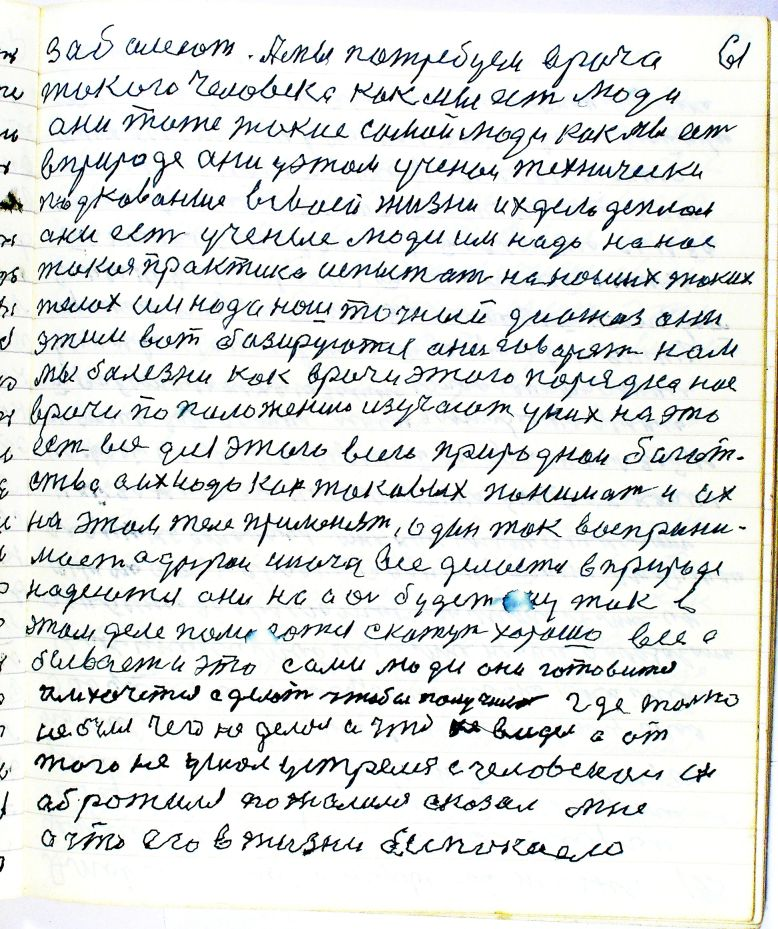 забалеют. Амы потребуем врача 61
такого человека как мы ест люди
ани тоже такие самои люди как мы ест
вприроде ани уэтом ученои технически
подкование всвоей жизни ихдело деплом
ани ест учение люди им надо на нас
такая практика испытат на наших таких
телах им надо наш точный диагноз они
этим вот базируются они говорят нам
мы балезни как врачи этого порядка нас
врачи по положению изучают уних на это
ест все для этого всего природнои багат-
ства а их надо как таковых понимат и их
на этом теле применят, один так восприни-
мает а другои иначе все делается вприроде
надеются они на а он будет так в
этом деле скажут хорошо все а
бывает и это сами люди они готовятся
им хочется сделат чтобы получит где только
не был чего не делал а что не видел а от
того не ушол устремя с человеком он
абротился пожалился сказал мне
а что его в жизни беспокоело